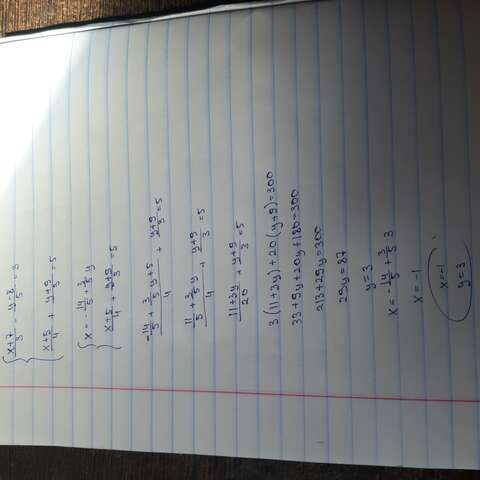 { (x+7)/3 - (y-8)/5 = 3
(x+5)/4 + (y+9)/3 = 5
{ x = -14/5 + 3/5 y
(x+5)/4 + (y+9)/3 = 5
(-14/5 + 3/5 y + 5)/4 + (y+9)/3 = 5
(11/5 + 3/5 y)/4 + (y+9)/3 = 5
(11+3y)/20 + (y+9)/3 = 5
3(11+3y)+20(y+9)=300
33+9y+20y+180=300
213+29y=300
29y=87
y=3
x = -14/5 + 3/5 3
x=-1
x=-1
y=3